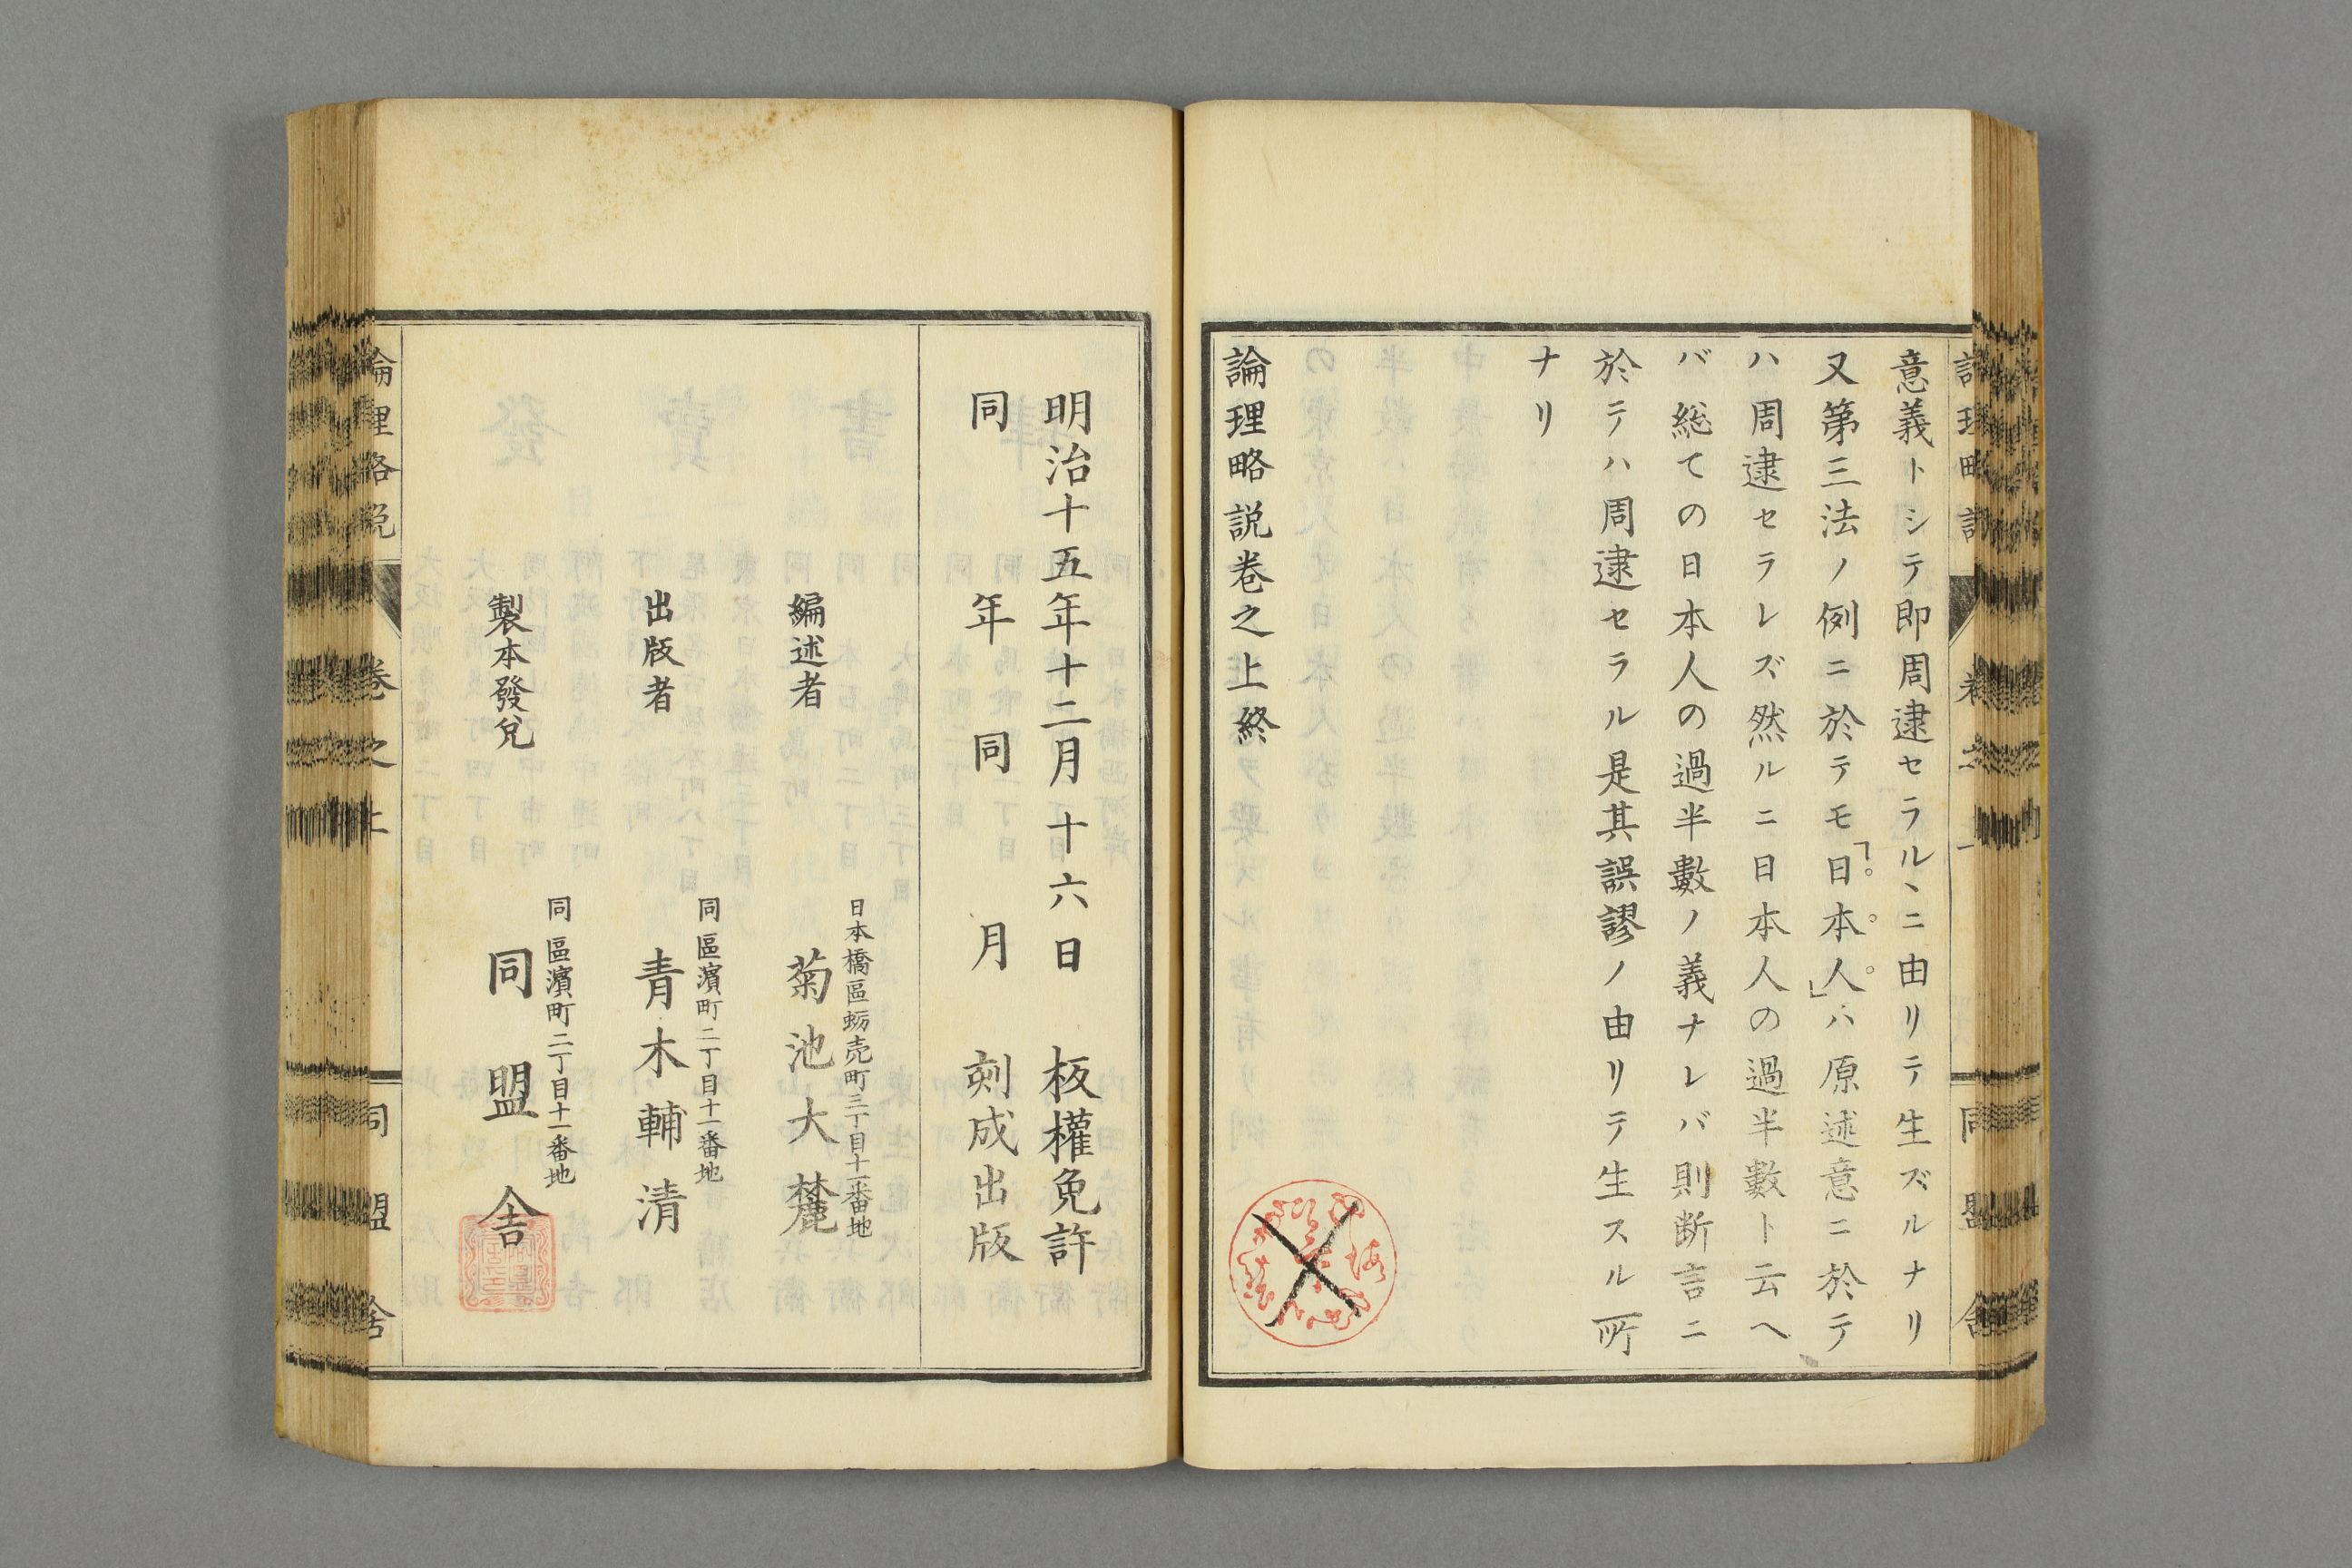 意義トシテ即周逮セラルヽニ由リテ生ズルナリ
又第三法ノ例ニ於テモ「日本人」ハ原述意ニ於テ
ハ周逮セラレズ然ルニ日本人の過半數ト云ヘ
バ総ての日本人の過半數ノ義ナレバ則断言ニ
於テハ周逮セラル是其誤謬ノ由リテ生スル所
ナリ
論理略説卷之上終
明治十五年十二月十六日 板權免許
同 年 同 月 刻成出版
日本橋區蛎売町三丁目十一番地
編述者 菊池大麓
同區濱町二丁目十一番地
出版者 青木輔清
同區濱町二丁目十一番地
製本發兌 同盟舎
論理略説 卷之上 同盟舎